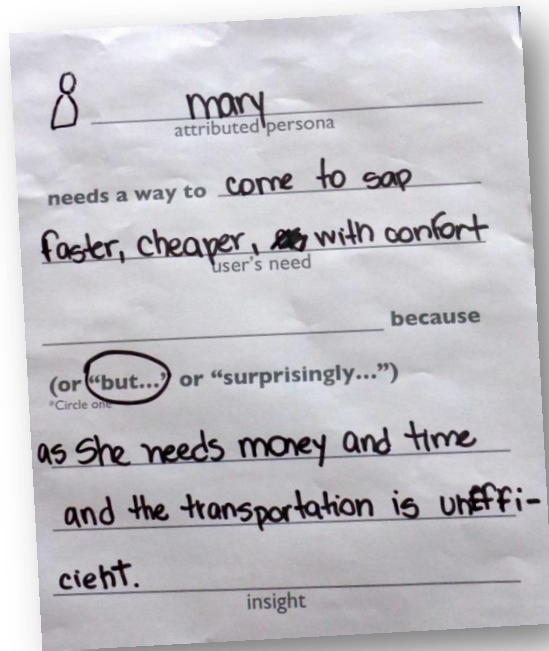 mary
attributed persona
needs a way to come to sap
faster, cheaper, with confort
user's need
because
(or “but...” or “surprisingly...”)
*Circle one
as She needs money and time
and the transportation is uneffi-
cient.
insight